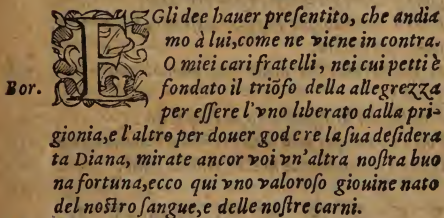 EGli dee hauer preſentito, che andia
mo à lui,come ne viene in contra.
O miei cari fratelli, nei cui petti è
Bor. fondato il triõfo della allegrezza
per eſſere l'vno liberato dalla pri-
gionia,e l'altro per douer godere la ſua deſidera
ta Diana, mirate ancor voi vn'altra noſtra buo
na fortuna,ecco qui vno valoroſo giouine nato
del noſtro ſangue,e delle noſtre carni.